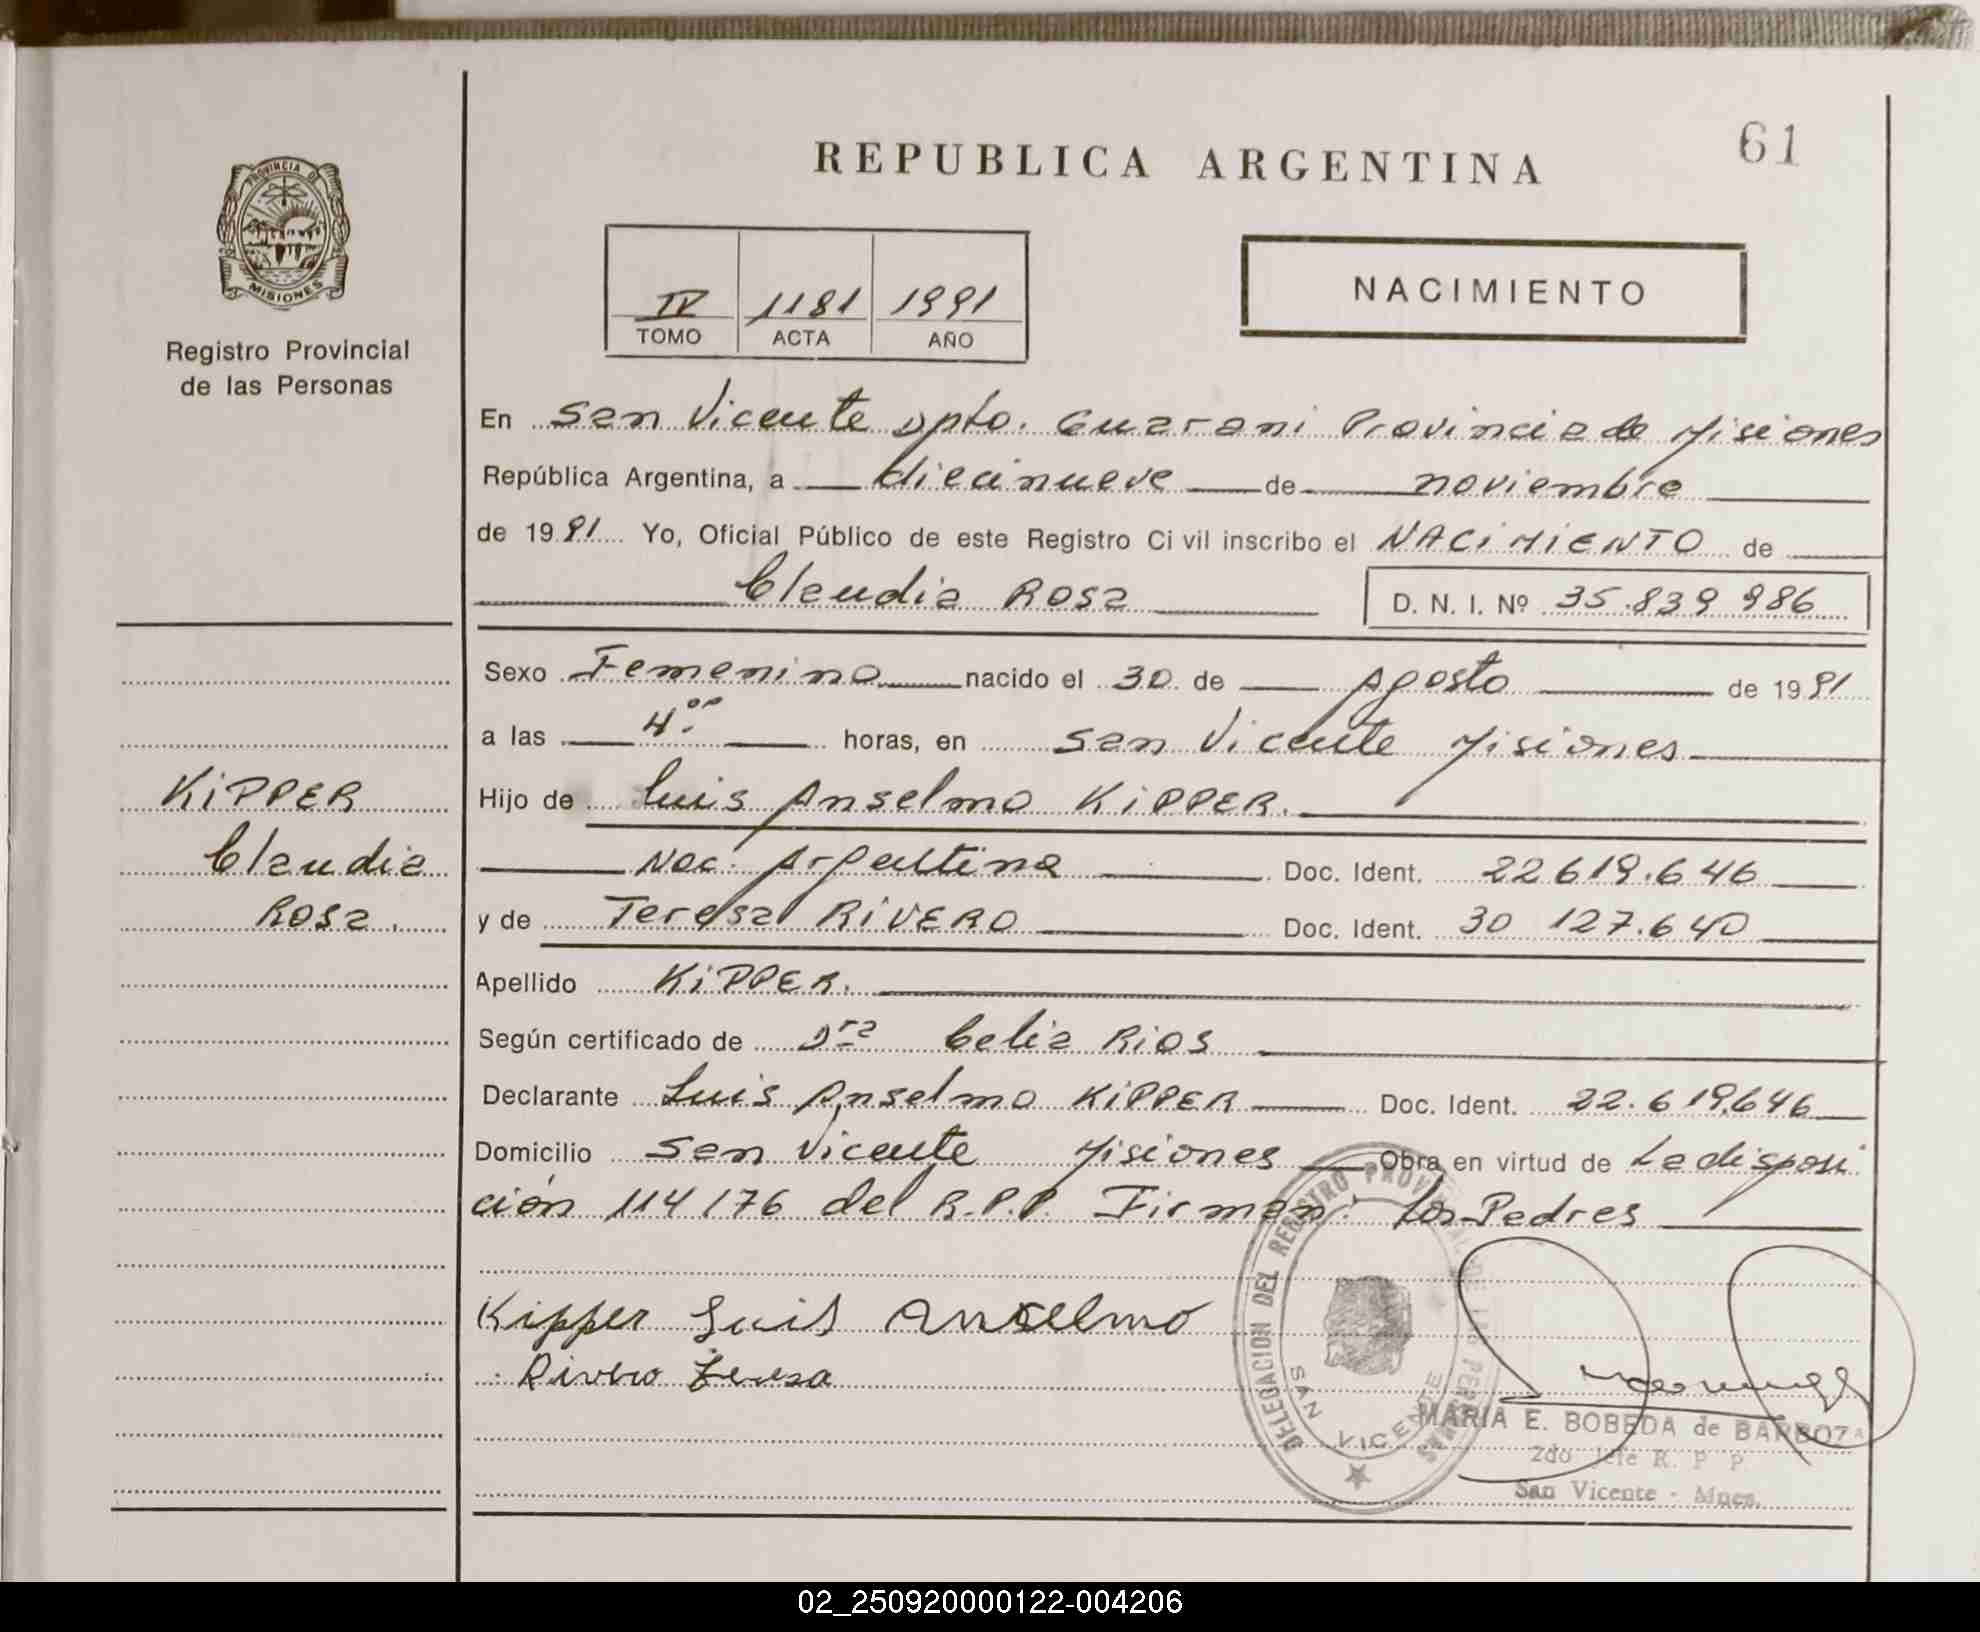 61
REPUBLICA ARGENTINA
PROVINCIA DE
MISIONES
Registro Provincial
de las Personas
IV 1181 1991
TOMO ACTA AÑO
NACIMIENTO
En San Vicente Dpto. Guarani Provincia de Misiones
República Argentina, a diecinueve de noviembre
de 1991 Yo, Oficial Público de este Registro Civil inscribo el NACIMIENTO de
Claudia Rosa D. N. I. Nº 35.839 986
Sexo Femenino nacido el 30 de Agosto de 1991
a las 4.00 horas, en San Vicente Misiones
Hijo de Luis Anselmo KIPPER.
Nac. Argentina Doc. Ident. 22619.646
y de Teresa RIVERO Doc. Ident. 30 127.640
Apellido KIPPER.
Según certificado de Dra Celia Rios
Declarante Luis Anselmo KIPPER Doc. Ident. 22.619.646
Domicilio San Vicente Misiones Obra en virtud de La disposi
ción 114/76 del R.P.P. Firman: Los Padres
Kipper Luis Anselmo
Rivero Teresa
KIPPER
Claudia
Rosa.
DELEGACION DEL REGISTRO PROVINCIAL DE LAS PERSONAS
SAN VICENTE
MARIA E. BOBEDA de BARBOZA
2do Jefe R. P. P.
San Vicente - Mnes.
02_250920000122-004206